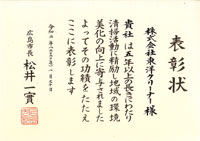 表彰状
株式会社東洋クリーナー様
貴社は五年以上の長きにわたり
清掃活動に精励し地域の環境
美化の向上に寄与されました
よってその功績をたたえ
ここに表彰します
広島市長
松井一實